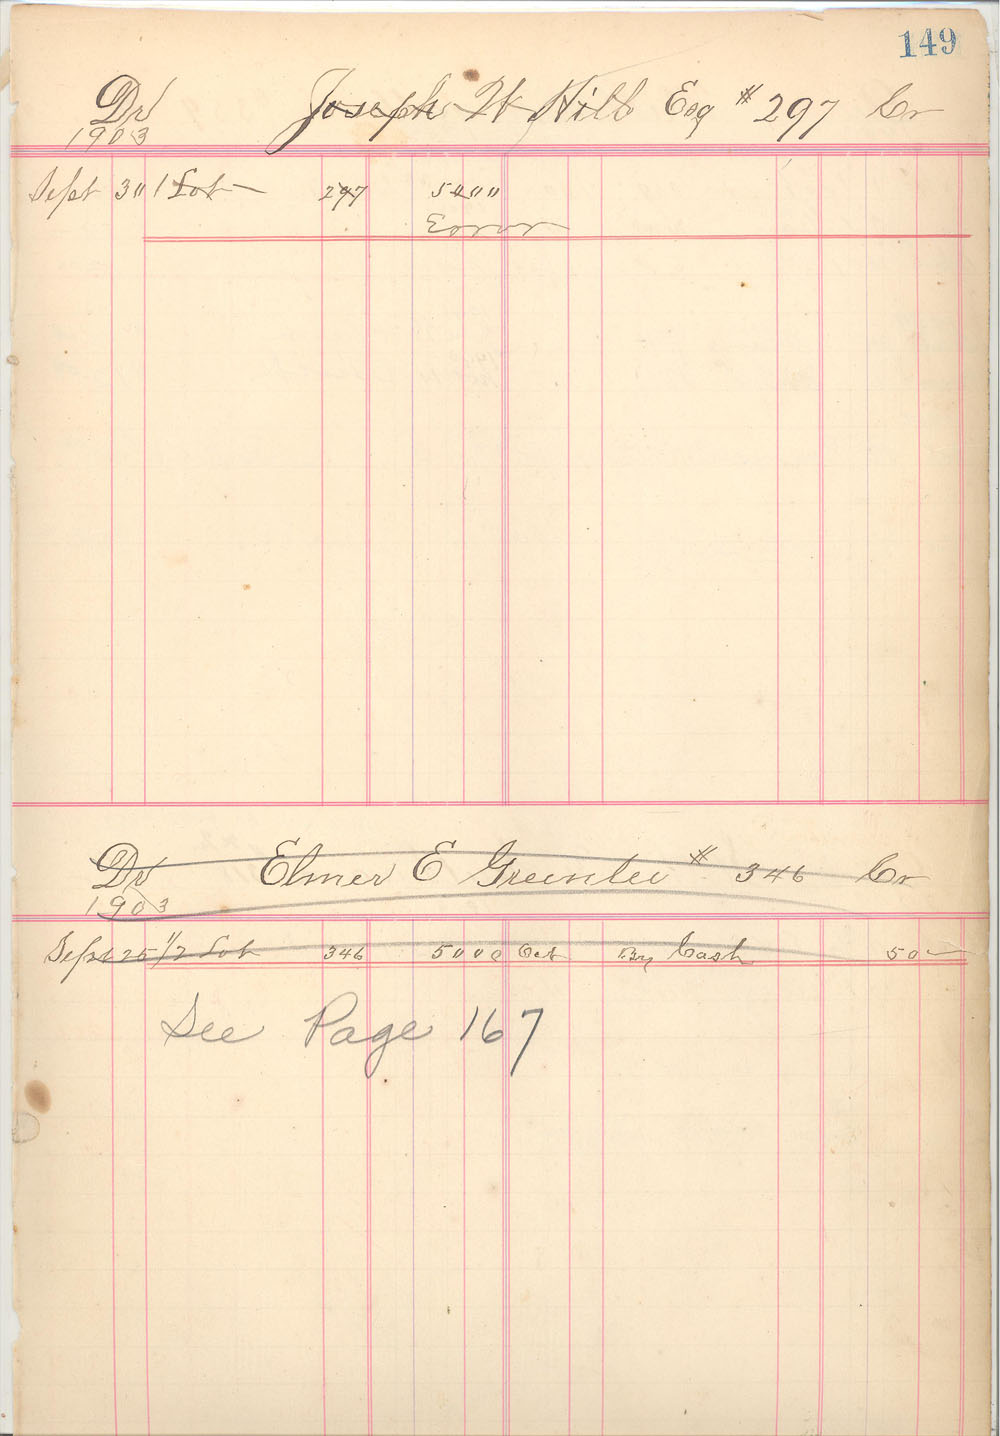 149
Dr Joseph W Hill Esq # 297 Cr
1903
Sept 3 " 1 Lot 297 50 00
Error
Dr Elmer E Greenlee # 346 Cr
1903
Sept 25 1/2 Lot 346 50 00 Oct By Cash 50 -
See Page 167